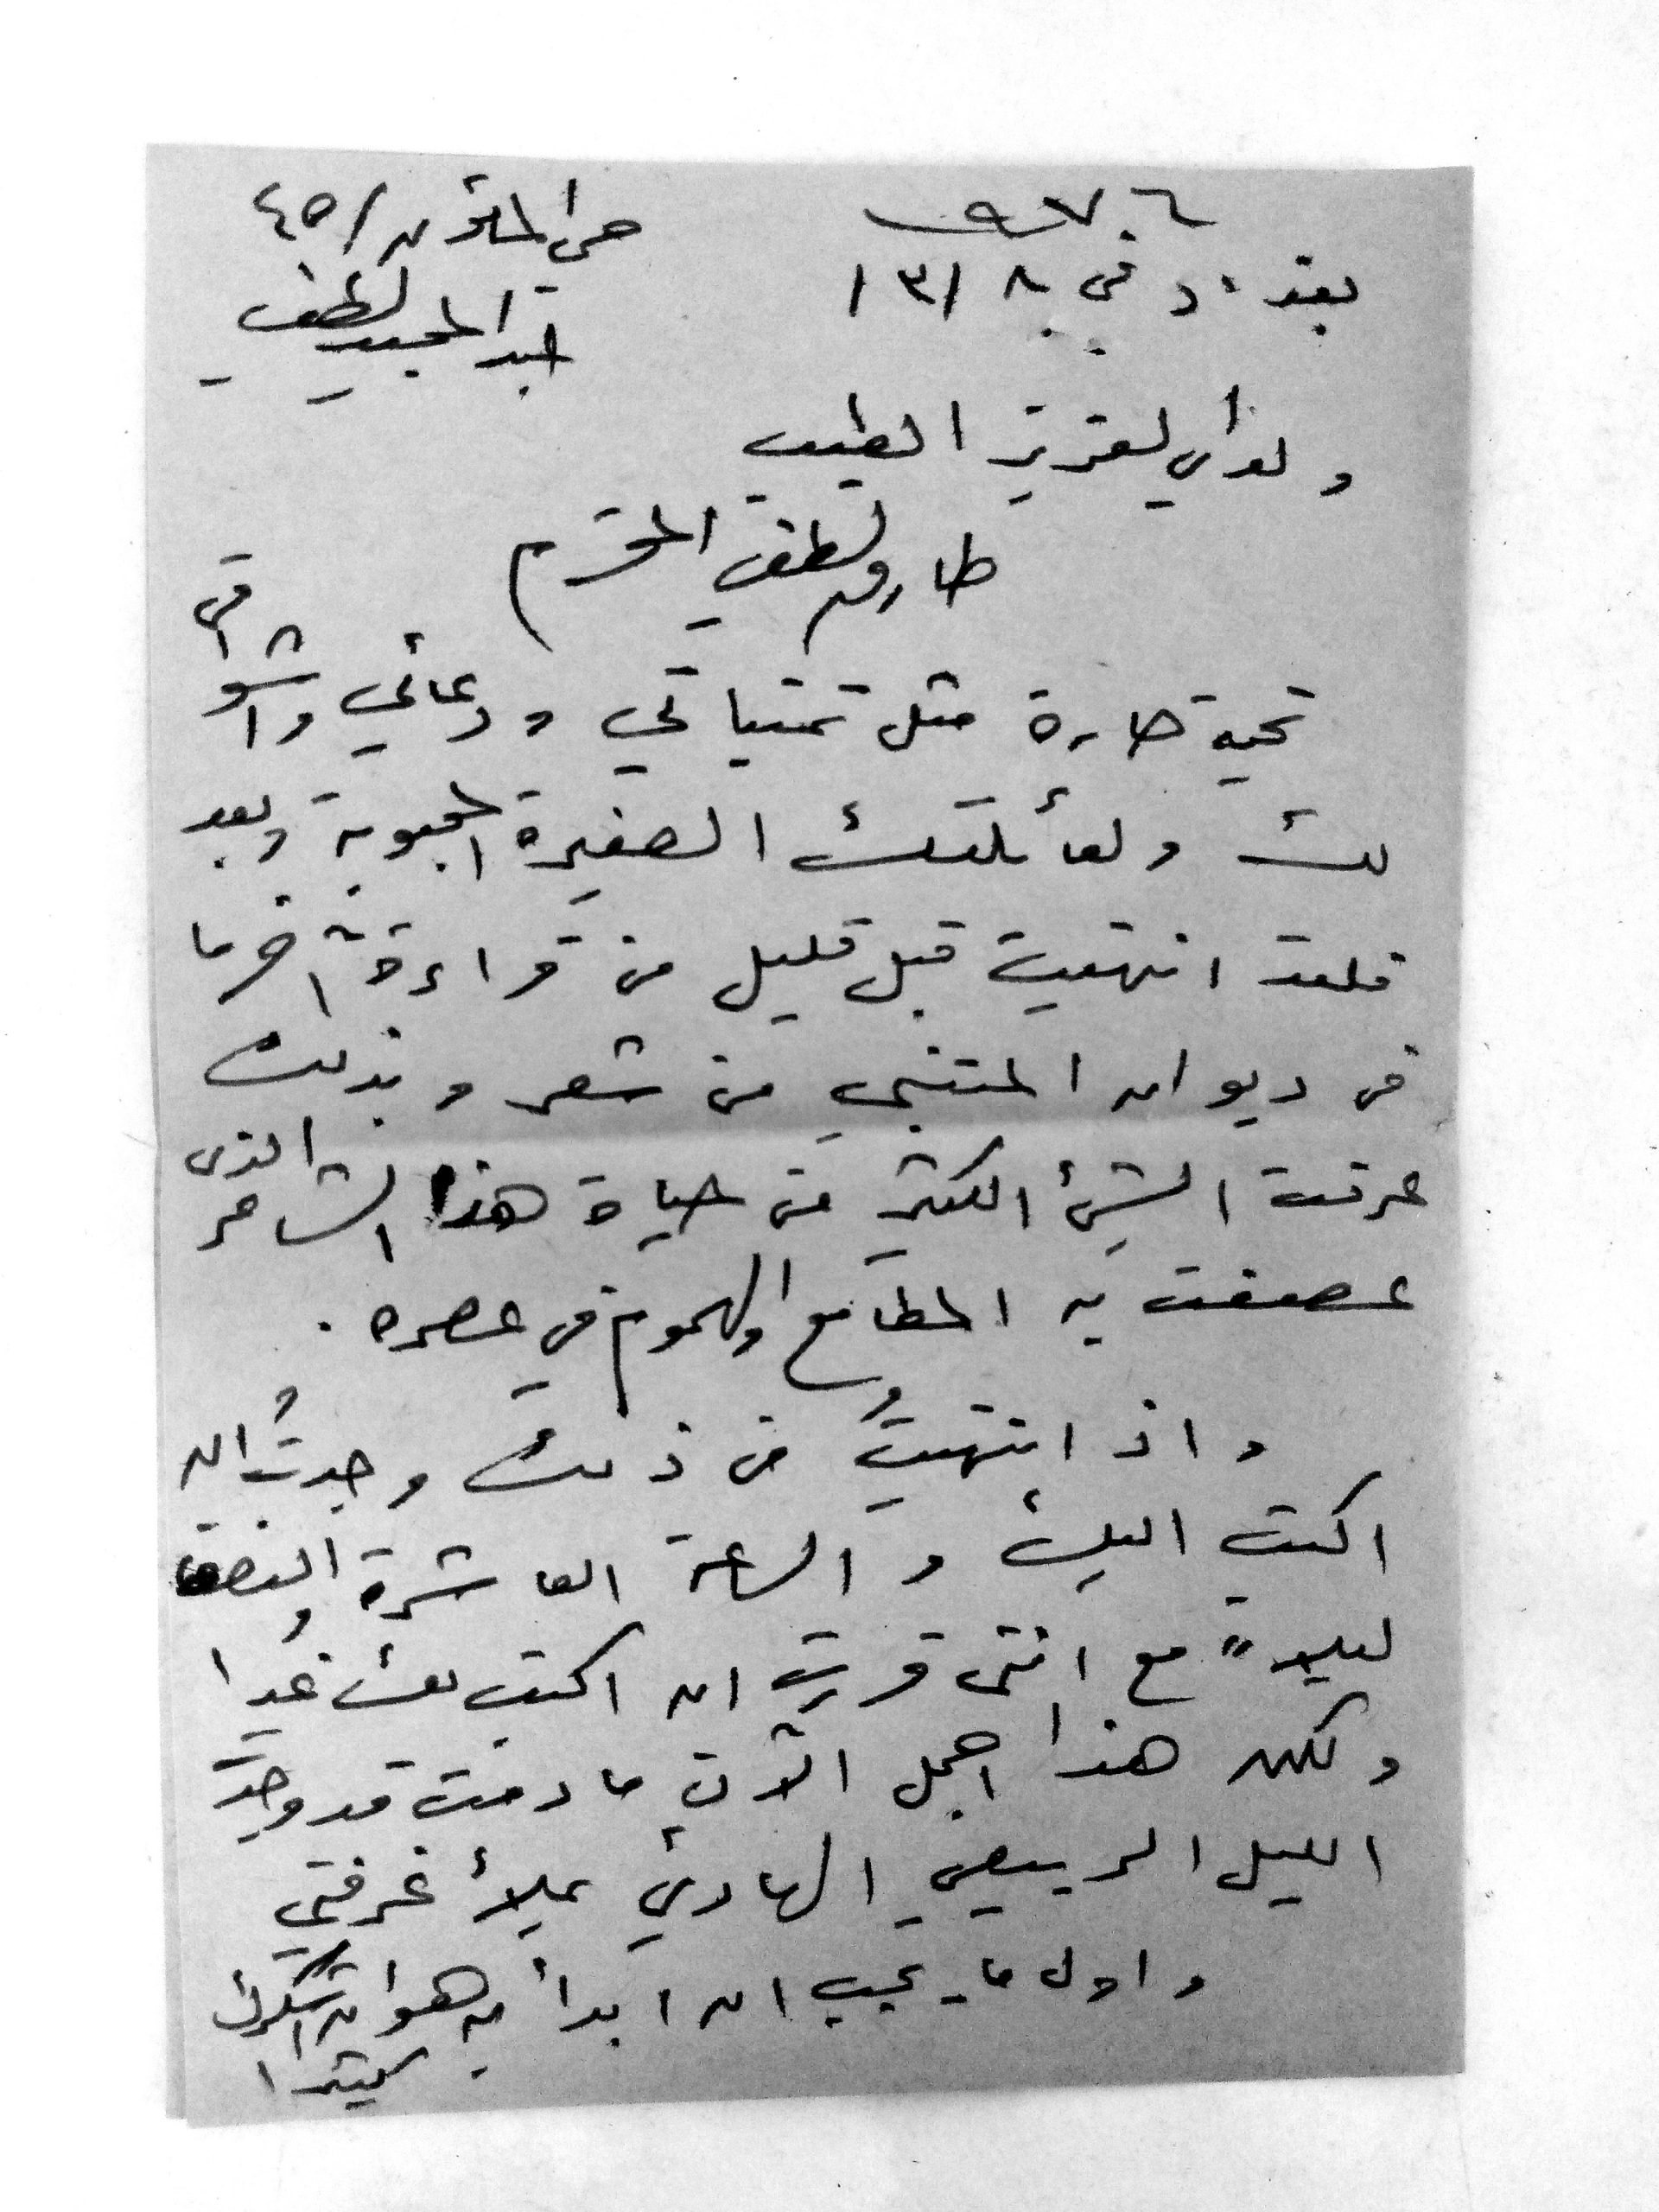 بغداد في ٨ /٣/
٩٧٠٦
حي المأمون / ٤٥
عبدالمجيد لطفي
ولدي العزيز الطيب
طارق لطفي المحترم
تحية حارة مثل تمنياتي ودعائي واشواقي
لك ولعائلتك الصغيرة المحبوبة وبعد
فلقد انتهيت قبل قليل من قراءة آخر ما
في ديوان المتنبي من شعر وبذلك
عرفت الشئ الكثير من حياة هذا الشاعر الذي
عصفت به المطامع والهموم في عصره .
واذ انتهيتُ من ذلك وجدتُ ان
اكتب اليك والساعة العاشرة والنصف
ليلاً مع انني قررت ان اكتب لك غداً
ولكن هذا اجمل الآن ما دمت قد وجدت
الليل الربيعي الهادئ يملأ غرفتي
واول ما يجب ان ابدأ به هو ان اشكرك
كثيرا